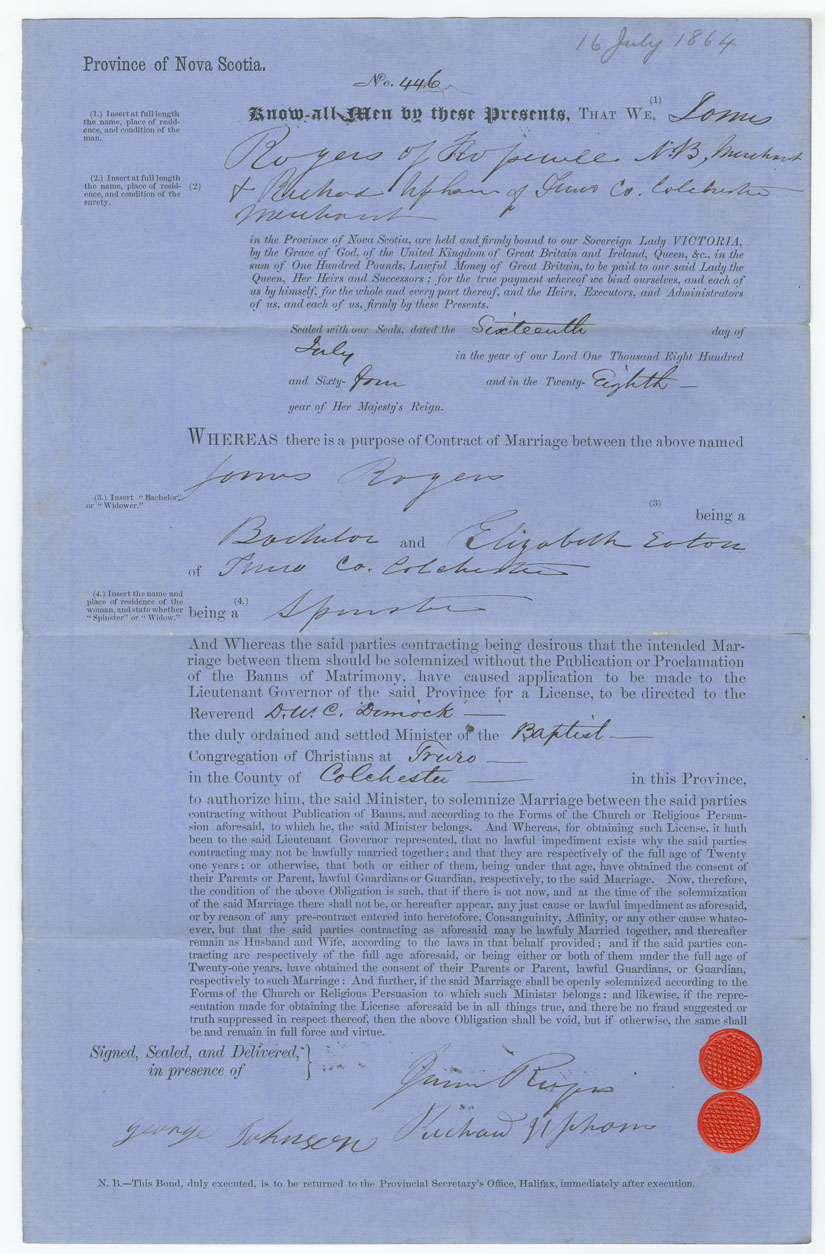 16 July 1864
Province of Nova Scotia.
No. 446
(1.) Insert at full length
the name, place of resid-
ence, and condition of the
man.
Know all Men by these Presents, THAT WE, (1) James
Rogers of Hopewell N.B, Merchant
(2.) Insert at full length
the name, place of resid-
ence, and condition of the
surety.
(2) & Richard Upham of Truro Co. Colchester
Merchant
in the Province of Nova Scotia, are held and firmly bound to our Sovereign Lady VICTORIA,
by the Grace of God, of the United Kingdom of Great Britain and Ireland, Queen, &c., in the
sum of One Hundred Pounds, Lawful Money of Great Britain, to be paid to our said Lady the
Queen, Her Heirs and Successors ; for the true payment whereof we bind ourselves, and each of
us by himself, for the whole and every part thereof, and the Heirs, Executors, and Administrators
of us, and each of us, firmly by these Presents.
Sealed with our Seals, dated the Sixteenth day of
July in the year of our Lord One Thousand Eight Hundred
and Sixty- four and in the Twenty- Eighth
year of Her Majesty's Reign.
WHEREAS there is a purpose of Contract of Marriage between the above named
James Rogers
(3.) Insert "Bachelor,"
or "Widower."
(3) being a
Bachelor and Elizabeth Eaton
of Truro Co. Colchester
(4.) Insert the name and
place of residence of the
woman, and state whether
"Spinster" or "Widow."
being a (4.) Spinster
And Whereas the said parties contracting being desirous that the intended Mar-
riage between them should be solemnized without the Publication or Proclamation
of the Banns of Matrimony, have caused application to be made to the
Lieutenant Governor of the said Province for a License, to be directed to the
Reverend D. W. C. Dimock
the duly ordained and settled Minister of the Baptist
Congregation of Christians at Truro
in the County of Colchester in this Province,
to authorize him, the said Minister, to solemnize Marriage between the said parties
contracting without Publication of Banns, and according to the Forms of the Church or Religious Persua-
sion aforesaid, to which he, the said Minister belongs. And Whereas, for obtaining such License, it hath
been to the said Lieutenant Governor represented, that no lawful impediment exists why the said parties
contracting may not be lawfully married together ; and that they are respectively of the full age of Twenty
one years ; or otherwise, that both or either of them, being under that age, have obtained the consent of
their Parents or Parent, lawful Guardians or Guardian, respectively, to the said Marriage. Now, therefore,
the condition of the above Obligation is such, that if there is not now, and at the time of the solemnization
of the said Marriage there shall not be, or hereafter appear, any just cause or lawful impediment as aforesaid,
or by reason of any pre-contract entered into heretofore, Consanguinity, Affinity, or any other cause whatso-
ever, but that the said parties contracting as aforesaid may be lawfuly Married together, and thereafter
remain as Husband and Wife, according to the laws in that behalf provided ; and if the said parties con-
tracting are respectively of the full age aforesaid, or being either or both of them under the full age of
Twenty-one years, have obtained the consent of their Parents or Parent, lawful Guardians, or Guardian,
respectively to such Marriage : And further, if the said Marriage shall be openly solemnized according to the
Forms of the Church or Religious Persuasion to which such Ministsr belongs : and likewise, if the repre-
sentation made for obtaining the License aforesaid be in all things true, and there be no fraud suggested or
truth suppressed in respect thereof, then the above Obligation shall be void, but if otherwise, the same shall
be and remain in full force and virtue.
Signed, Sealed, and Delivered,
in presence of
James Rogers
George Johnson Richard Upham
N. B.—This Bond, duly executed, is to be returned to the Provincial Secretary's Office, Halifax, immediately after execution.